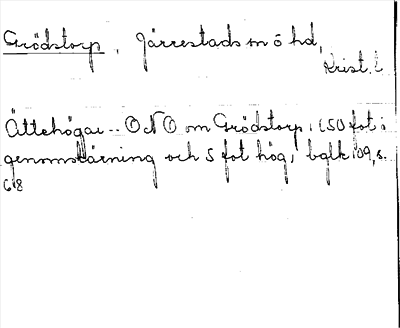 Grödstorp, Järrestads m ö hd,
Krist. l
Ättehögar -- ONO om Grödstorp, (50 fot i
genomskärning och 5 fot hög, bglk 09, s.
68